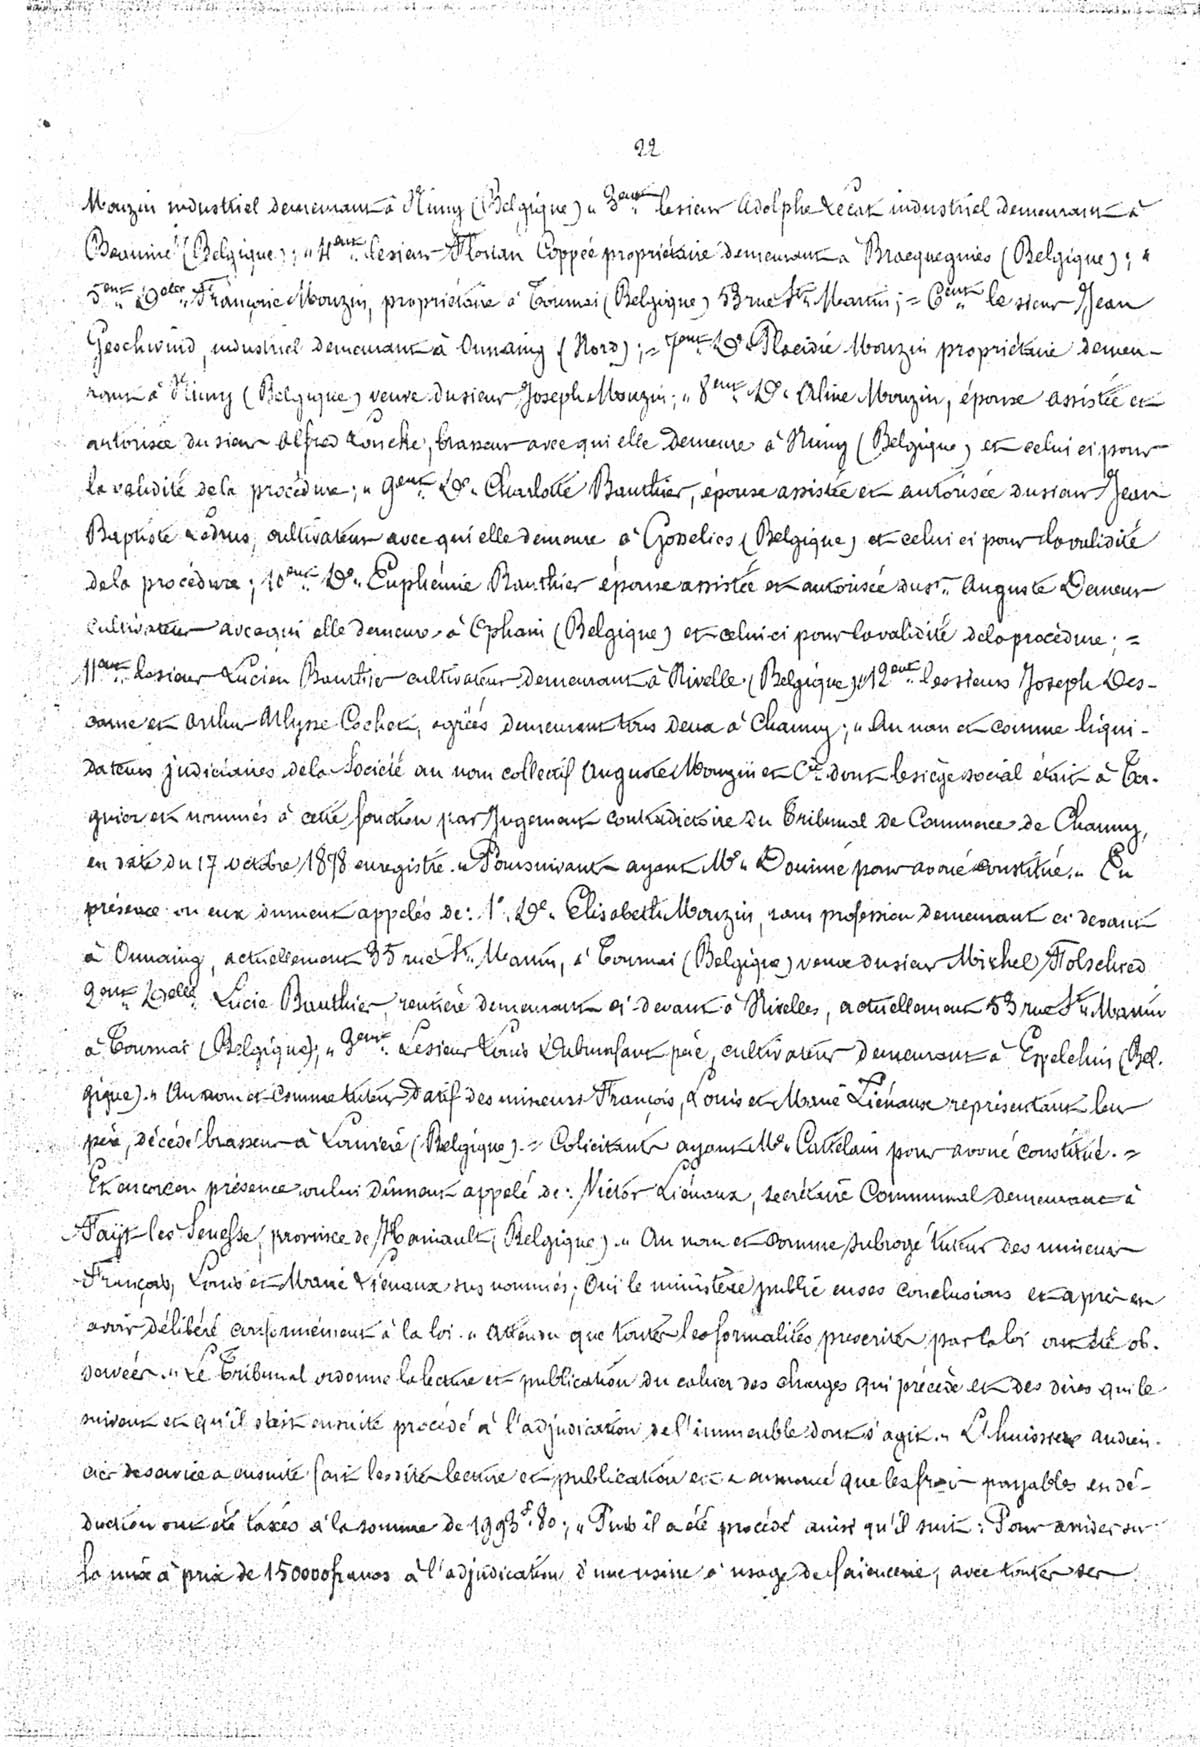 22
Mouzin industriel demeurant à Nimy (Belgique) " 3ent. le sieur Adolphe Lecat industriel demeurant à
(Belgique) ; " 4ent. le sieur Florian Coppée propriétaire demeurant à Bracquegnies (Belgique) ; "
5ent. Delle Françoise Mouzin, propriétaire à Tournai (Belgique) 53 rue St. Martin ; = 6ent. le sieur Jean
Geschwind, industriel demeurant à Onnaing (Nord) ; = 7ent. De. Placidie Mouzin propriétaire demeu-
rant à Nimy (Belgique) veuve du sieur Joseph Mouzin ; " 8ent. De. Aline Mouzin, épouse assistée et
autorisée du sieur Alfred brasseur avec qui elle demeure à Nimy (Belgique) et celui ci pour
la validité de la procédure ; " 9ent. De. Charlotte Bauthier, épouse assistée et autorisée du sieur Jean
Baptiste Ledrus, cultivateur avec qui elle demeure à Gosselies (Belgique) et celui ci pour la validité
de la procédure ; 10ent. De. Euphémie Bauthier épouse assistée et autorisée du sr. Auguste Demeur
cultivateur avec qui elle demeure à Ophain (Belgique) et celui ci pour la validité de la procédure ; =
11ent. le sieur Lucien Bauthier cultivateur demeurant à Nivelle (Belgique) ; " 12ent. les sieurs Joseph Des-
came et Arthur Ulysse Cochet, agréés demeurant tous deux à Chauny ; " Au nom et comme liqui-
dateurs judiciaires de la Société au nom collectif Auguste Mouzin et Cie. dont le siège social était à Ter-
gnier et nommés à cette fonction par Jugement contradictoire du Tribunal de Commerce de Chauny,
en date du 17 octobre 1878 enregistré. " Poursuivants ayant Me. pour avoué constitué. " En
présence ou eux dument appelés de : 1°. De. Elisabeth Mouzin, sans profession demeurant ci devant
à Onnaing, actuellement 35 rue St. Martin, à Tournai (Belgique) veuve du sieur Michel
2ent. Delle. Lucie Bauthier, rentière demeurant ci-devant à Nivelles, actuellement 53 rue St. Martin
à Tournai (Belgique) ; " 3ent. Le sieur Louis Dubrunfaut père, cultivateur demeurant à Espelchin (Bel-
gique). " Au nom et comme tuteur datif des mineurs François, Louis et Marie Liénaux représentant leur
père, décédé brasseur à Louvière (Belgique). = Colicitants ayant Me. Cattelain pour avoué constitué. =
Et encore en présence ou lui dûment appelé de : Victor Liénaux, secrétaire Communal demeurant à
Fayt-lez-Seneffe, province de Hainault (Belgique). " Au nom et comme subrogé tuteur des mineurs
François, Louis et Marie Liénaux sus nommés ; Oui le ministère public en ses conclusions et après en
avoir délibéré conformément à la loi. " Attendu que toutes les formalités prescrites par la loi ont été ob-
servées. " Le Tribunal ordonne la lecture et publication du cahier des charges qui précède et des dires qui le
suivent et qu'il soit ensuite procédé à l'adjudication de l'immeuble dont s'agit. " L'huissier audien-
cier de service a ensuite fait lesdites lecture et publication et a annoncé que les frais payables en dé-
duction ont été taxés à la somme de 1993f.80 ; " Puis il a été procédé ainsi qu'il suit : Pour arriver sur
la mise à prix de 150000 francs à l'adjudication d'une usine à usage de faïencerie, avec toutes ses